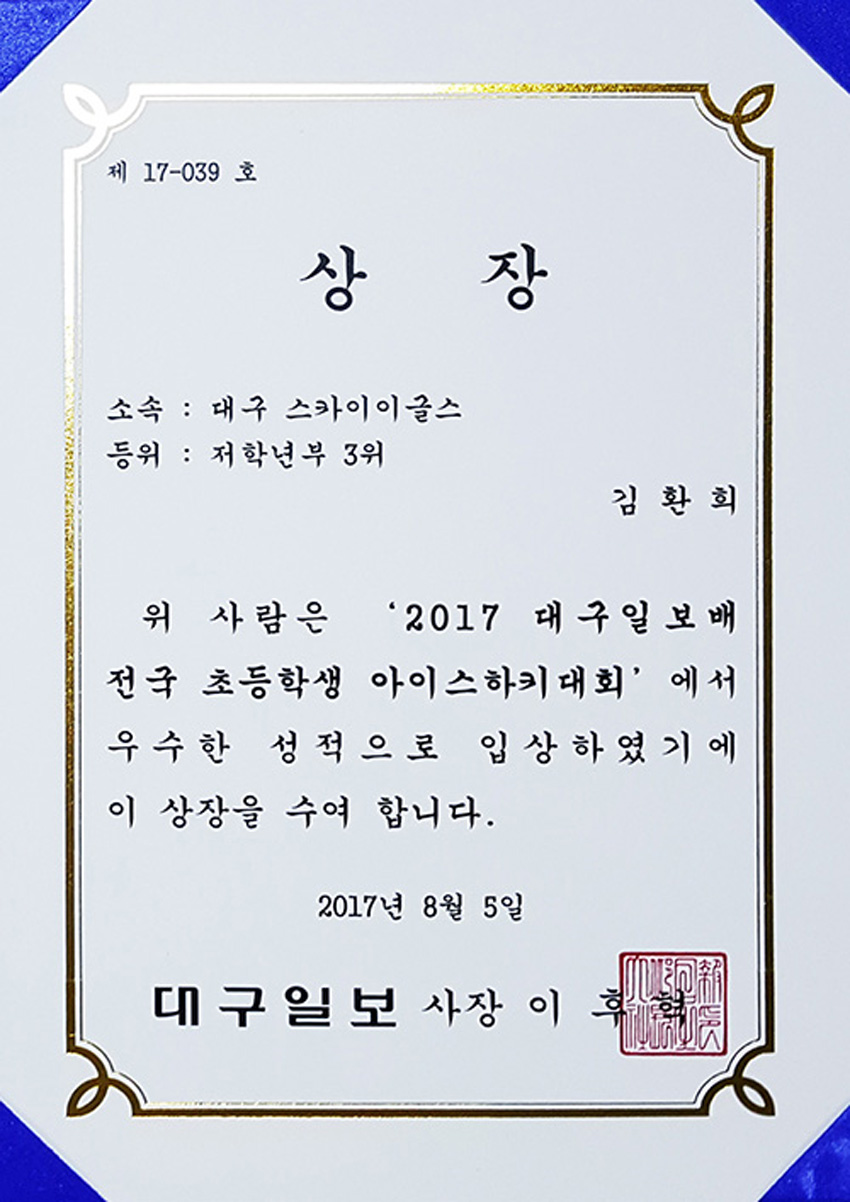 제 17-039 호
상 장
소속 : 대구 스카이이글스
등위 : 저학년부 3위
김 환 희
위 사람은 ‘2017 대구일보배
전국 초등학생 아이스하키대회’ 에서
우수한 성적으로 입상하였기에
이 상장을 수여 합니다.
2017년 8월 5일
대구일보 사장 이 후 혁